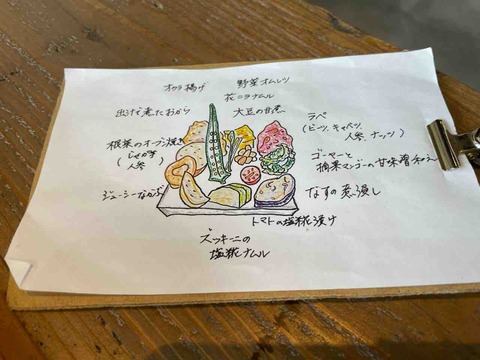 オクラ揚げ
野菜オムレツ
花ニラナムル
出汁で煮たおから
大豆の甘煮
ラペ
(ビーツ、キャベツ、
人参、ナッツ)
根菜のオーブン焼き
(じゃが芋
人参)
ゴーヤーと
摘果マンゴーの甘味噌和え
ジューシーなかぶ
なすの煮浸し
トマトの塩糀漬け
ズッキーニの
塩糀ナムル